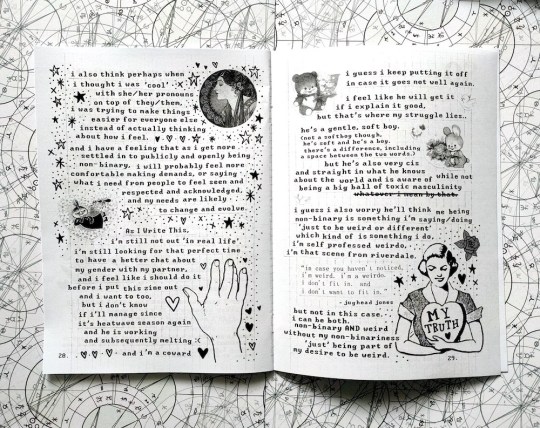 i also think perhaps when
i thought i was 'cool'
with she/her pronouns
on top of they/them,
i was trying to make things
easier for everyone else
instead of actually thinking
about how i feel.
and i have a feeling that as i get more
settled in to publicly and openly being
non-binary, i will probably feel more
comfortable making demands, or saying
what i need from people to feel seen and
respected and acknowledged,
and my needs are likely
to change and evolve.
As I Write This,
i'm still not out 'in real life'
i'm still looking for that perfect time
to have a better chat about
my gender with my partner,
and i feel like i should do it
before i put this zine out
and i want to,
but i don't know
if i'll manage since
it's heatwave season again
and he is working
and subsequently melting :(
and i'm a coward
28.
i guess i keep putting it off
in case it goes not well again.
i feel like he will get it
if i explain it good,
but that's where my struggle lies.
he's a gentle, soft boy.
(not a softboy though,
he's soft and he's a boy.
there's a difference, including
a space between the two words.)
but he's also very cis
and straight in what he knows
about the world and is aware of while not
being a big ball of toxic masculinity
whatever i mean by that.
i guess i also worry he'll think me being
non-binary is something i'm saying/doing
'just to be weird or different'
which kind of is something i do,
i'm self professed weirdo,
i'm that scene from riverdale.
"in case you haven't noticed,
i'm weird. i'm a weirdo.
i don't fit in. and
i don't want to fit in.
- jughead jones
but not in this case.
i can be both.
non-binary AND weird
without my non-binariness
'just' being part of
my desire to be weird.
MY
TRUTH
29.